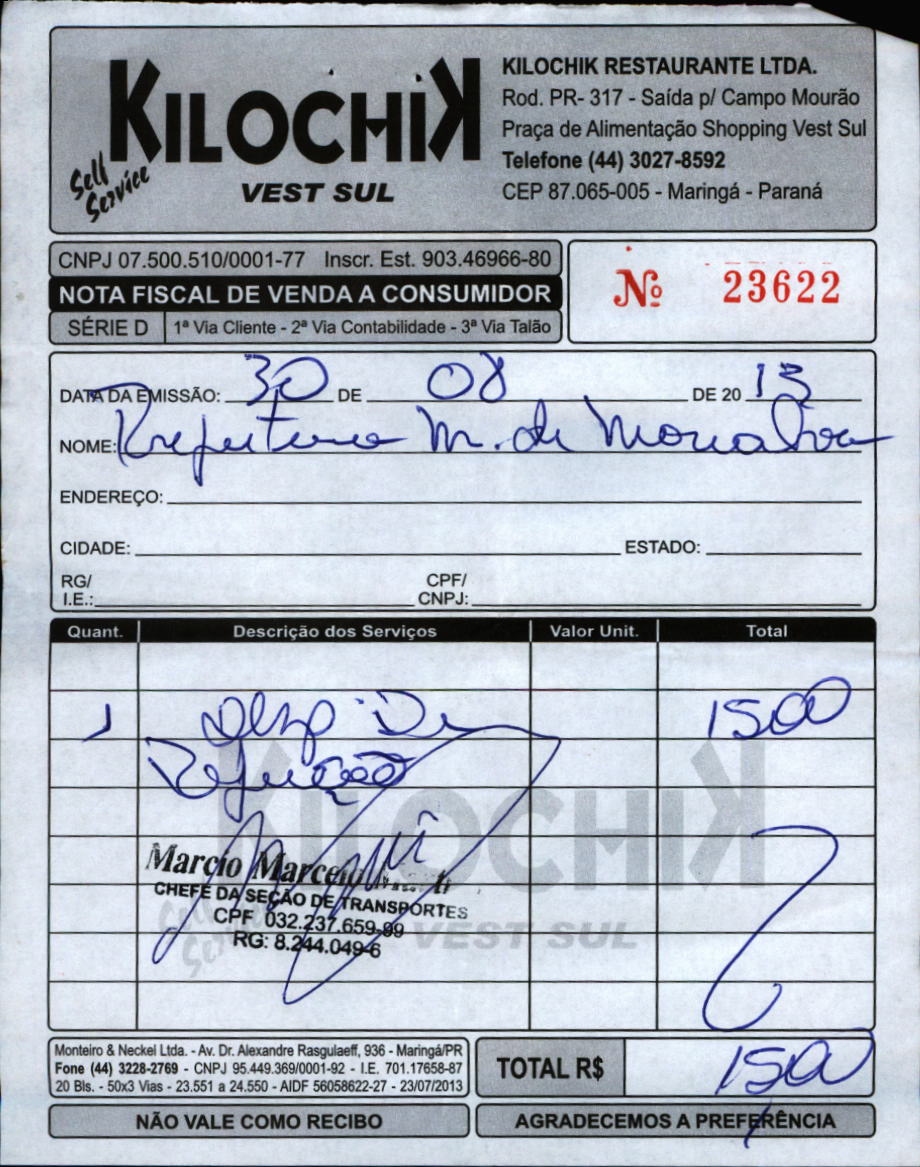 KILOCHIK
Self Service
VEST SUL
KILOCHIK RESTAURANTE LTDA.
Rod. PR- 317 - Saída p/ Campo Mourão
Praça de Alimentação Shopping Vest Sul
Telefone (44) 3027-8592
CEP 87.065-005 - Maringá - Paraná
CNPJ 07.500.510/0001-77 Inscr. Est. 903.46966-80
NOTA FISCAL DE VENDA A CONSUMIDOR
SÉRIE D 1ª Via Cliente - 2ª Via Contabilidade - 3ª Via Talão
Nº 23622
DATA DA EMISSÃO: 30 DE 08 DE 2013
NOME: Prefeitura M. de
ENDEREÇO:
CIDADE: ESTADO:
RG/ I.E.: CPF/ CNPJ:
Quant. Descrição dos Serviços Valor Unit. Total
1 Desp. De 1500
Refeição
KILOCHIK
Self Service
VEST SUL
Marcio Marcelo
CHEFE DA SEÇÃO DE TRANSPORTES
CPF 032.237.659-99
RG: 8.244.049-6
Monteiro & Neckel Ltda. - Av. Dr. Alexandre Rasgulaeff, 936 - Maringá/PR
Fone (44) 3228-2769 - CNPJ 95.449.369/0001-92 - I.E. 701.17658-87
20 Bls. - 50x3 Vias - 23.551 a 24.550 - AIDF 56058622-27 - 23/07/2013
TOTAL R$ 1500
NÃO VALE COMO RECIBO
AGRADECEMOS A PREFERÊNCIA